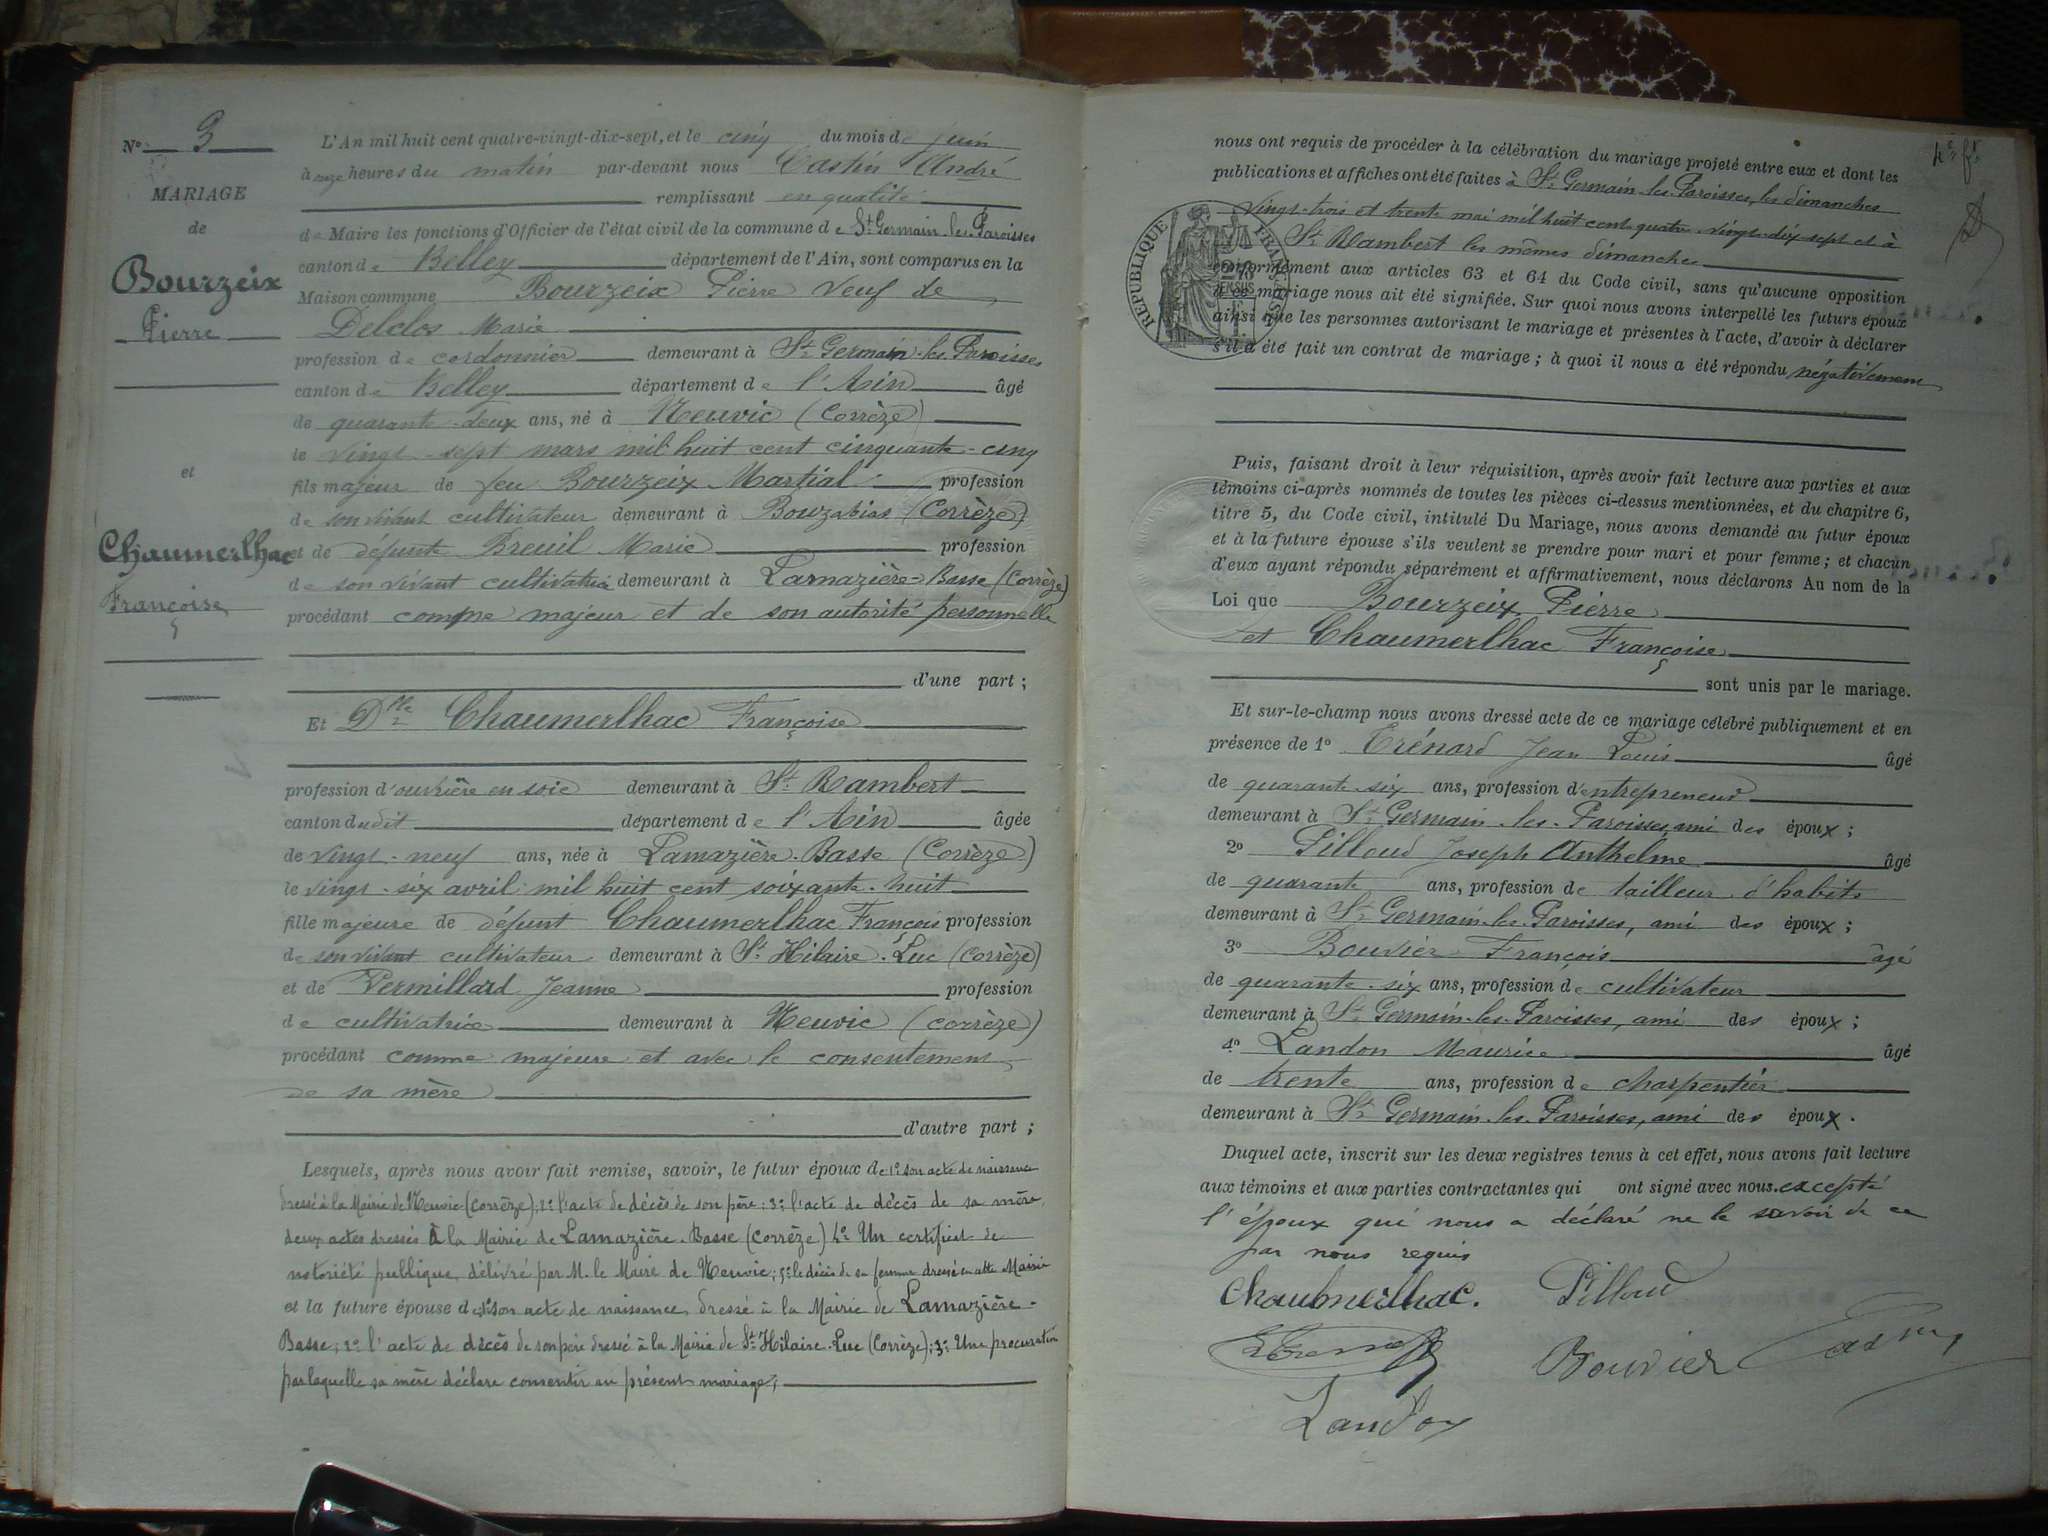 N° 3
MARIAGE
de
Bourzeix
Pierre
et
Chaumerlhac
Françoise
L'An mil huit cent quatre-vingt-dix-sept, et le cinq du mois de juin
à onze heures du matin par-devant nous Castin André
remplissant en qualité
de Maire les fonctions d'Officier de l'état civil de la commune de St Germain-les-Paroisses
canton de Belley département de l'Ain, sont comparus en la
Maison commune Bourzeix Pierre veuf de
Delclos Marie
profession de cordonnier demeurant à St Germain-les-Paroisses
canton de Belley département de l'Ain âgé
de quarante-deux ans, né à Neuvic (Corrèze)
le vingt-sept mars mil huit cent cinquante-cinq
fils majeur de feu Bourzeix Martial profession
de son vivant cultivateur demeurant à Bouzabias (Corrèze)
et de défunte Breuil Marie profession
de son vivant cultivatrice demeurant à Lamazière-Basse (Corrèze)
procédant comme majeur et de son autorité personnelle
d'une part ;
Et Dlle Chaumerlhac Françoise
profession d'ouvrière en soie demeurant à St Rambert
canton dudit département de l'Ain âgée
de vingt-neuf ans, née à Lamazière-Basse (Corrèze)
le vingt-six avril mil huit cent soixante-huit
fille majeure de défunt Chaumerlhac François profession
de son vivant cultivateur demeurant à St Hilaire-Luc (Corrèze)
et de Vermillard Jeanne profession
de cultivatrice demeurant à Neuvic (Corrèze)
procédant comme majeure et avec le consentement
de sa mère
d'autre part ;
Lesquels, après nous avoir fait remise, savoir, le futur époux de 1° son acte de naissance
dressé à la Mairie de Neuvic (Corrèze); 2° l'acte de décès de son père; 3° l'acte de décès de sa mère,
deux actes dressés à la Mairie de Lamazière-Basse (Corrèze) 4° Un certificat de
notoriété publique délivré par M. le Maire de Neuvic; 5° le décès de sa femme dressé en cette Mairie
et la future épouse de 1° son acte de naissance dressé à la Mairie de Lamazière-
Basse; 2° l'acte de décès de son père dressé à la Mairie de St Hilaire-Luc (Corrèze); 3° Une procuration
par laquelle sa mère déclare consentir au présent mariage;
nous ont requis de procéder à la célébration du mariage projeté entre eux et dont les
publications et affiches ont été faites à St Germain-les-Paroisses, les dimanches
vingt-trois et trente mai mil huit cent quatre-vingt-dix-sept et à
St Rambert les mêmes dimanches
REPUBLIQUE FRANÇAISE
conformément aux articles 63 et 64 du Code civil, sans qu'aucune opposition
à ce mariage nous ait été signifiée. Sur quoi nous avons interpellé les futurs époux
ainsi que les personnes autorisant le mariage et présentes à l'acte, d'avoir à déclarer
s'il a été fait un contrat de mariage ; à quoi il nous a été répondu négativement
Puis, faisant droit à leur réquisition, après avoir fait lecture aux parties et aux
témoins ci-après nommés de toutes les pièces ci-dessus mentionnées, et du chapitre 6,
titre 5, du Code civil, intitulé Du Mariage, nous avons demandé au futur époux
et à la future épouse s'ils veulent se prendre pour mari et pour femme ; et chacun
d'eux ayant répondu séparément et affirmativement, nous déclarons Au nom de la
Loi que Bourzeix Pierre
et Chaumerlhac Françoise
sont unis par le mariage.
Et sur-le-champ nous avons dressé acte de ce mariage célébré publiquement et en
présence de 1° Trénard Jean Louis âgé
de quarante-six ans, profession d'entrepreneur
demeurant à St Germain-les-Paroisses, ami des époux ;
2° Pilloud Joseph Anthelme âgé
de quarante ans, profession de tailleur d'habits
demeurant à St Germain-les-Paroisses, ami des époux ;
3° Bouvier François âgé
de quarante-six ans, profession de cultivateur
demeurant à St Germain-les-Paroisses, ami des époux ;
4° Landon Maurice âgé
de trente ans, profession de charpentier
demeurant à St Germain-les-Paroisses, ami des époux.
Duquel acte, inscrit sur les deux registres tenus à cet effet, nous avons fait lecture
aux témoins et aux parties contractantes qui ont signé avec nous. excepté
l'époux qui nous a déclaré ne le savoir de ce
par nous requis
Chaubmerlhac. Pilloud
Bouvier
Landon